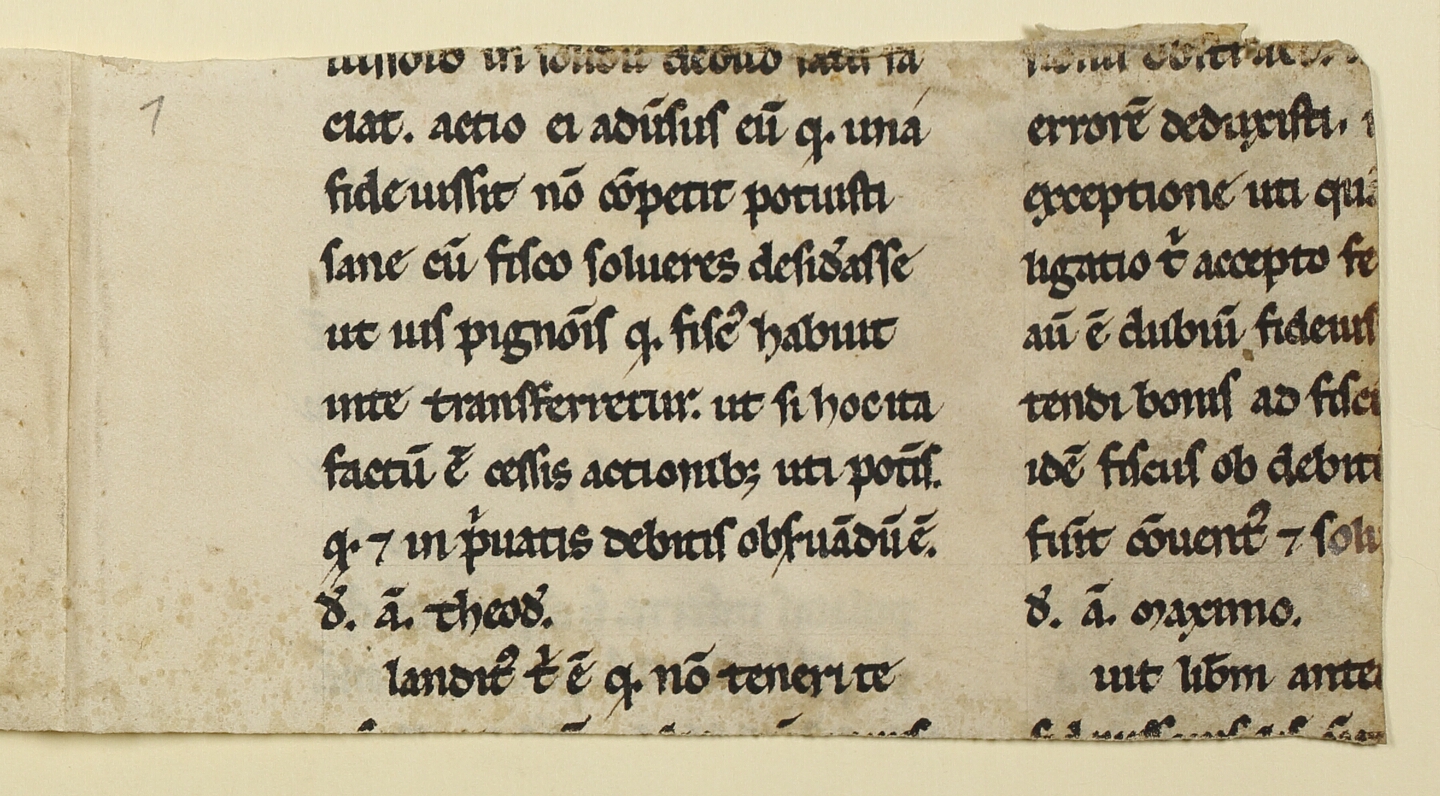 in solidū
ciat. actio ei adūsus eū q. una
fideiussit nō cōpetit potuisti
sane cū fisco solueres desid̾asse
ut uis pignōis q. fisc᾽ habuit
inte transferretur. ut si hoc ita
factū ē cessis actionib; uti pot̄is.
q. ⁊ in p̾uatis debitis obseruādū ē.
d̾. ā. theod̾.
landit᾽ t̾ ē q. nō teneri te
errorē deduxisti.
exceptione uti
ligatio t̾ accepto fe
aū ē dubiū fideius
tendi bonis ad fisci
idē fiscus ob debiti
fūit cōuenit᾽ ⁊ solu
d̾. ā. maximo.
uit lib̄m ante